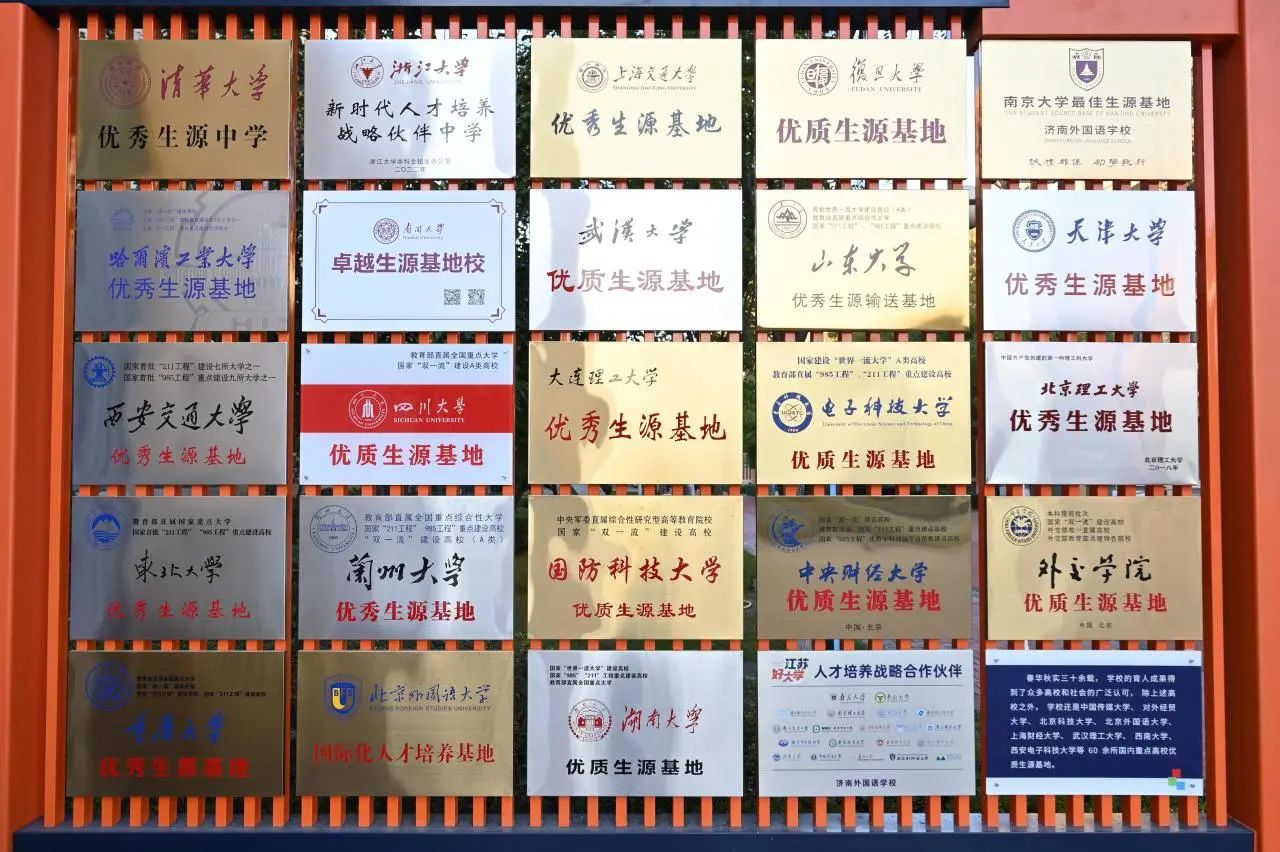 清华大学
优秀生源中学
浙江大学
ZHEJIANG UNIVERSITY
新时代人才培养
战略伙伴中学
浙江大学本科生招生办公室
二〇二二年
上海交通大学
SHANGHAI JIAO TONG UNIVERSITY
优秀生源基地
復旦大學
FUDAN UNIVERSITY
优质生源基地
南京大学最佳生源基地
TOP STUDENT SOURCE BASE OF NANJING UNIVERSITY
济南外国语学校
JINAN FOREIGN LANGUAGE SCHOOL
哈爾濱工業大學
优秀生源基地
南開大學
Nankai University
卓越生源基地校
武漢大学
优质生源基地
教育部直属重点综合性大学
国家“211工程”、“985工程”重点建设高校
山东大学
优秀生源输送基地
天津大学
优秀生源基地
国家首批“211工程”建设七所大学之一
国家首批“985工程”重点建设九所大学之一
西安交通大學
优秀生源基地
教育部直属全国重点大学
国家“双一流”建设A类高校
四川大學
SICHUAN UNIVERSITY
优质生源基地
大连理工大学
优秀生源基地
国家建设“世界一流大学”A类高校
教育部直属“985工程”、“211工程”重点建设高校
电子科技大学
University of Electronic Science and Technology of China
优质生源基地
中国共产党创建的第一所理工科大学
北京理工大学
优秀生源基地
北京理工大学
二〇一八年
教育部直属国家重点大学
国家首批“211工程”“985工程”重点建设高校
東北大學
优秀生源基地
教育部直属全国重点综合性大学
国家“211工程”985工程”重点建设高校
“双一流”建设高校（A类）
蘭州大學
优秀生源基地
中央军委直属综合性研究型高等教育院校
国家 双一流 建设高校
国防科技大学
优质生源基地
中央财经大学
优质生源基地
中国·北京
本科提前批次
国家“双一流”建设高校
外交部唯一直属高校
外交部教育部共建特色院校
外交学院
优质生源基地
中国 北京
重慶大學
优秀生源基地
北京外国语大学
BEIJING FOREIGN STUDIES UNIVERSITY
国际化人才培养基地
国家“世界一流大学”建设高校
国家“985”“211”工程重点建设高校
教育部直属全国重点大学
湖南大學
优质生源基地
江苏
好大学
人才培养战略合作伙伴
济南外国语学校
春华秋实三十余载， 学校的育人成果得
到了众多高校和社会的广泛认可， 除上述高
校之外， 学校还是中国传媒大学、 对外经贸
大学、 北京科技大学、 北京外国语大学、
上海财经大学、 武汉理工大学、 西南大学、
西安电子科技大学等 60 余所国内重点高校优
质生源基地。